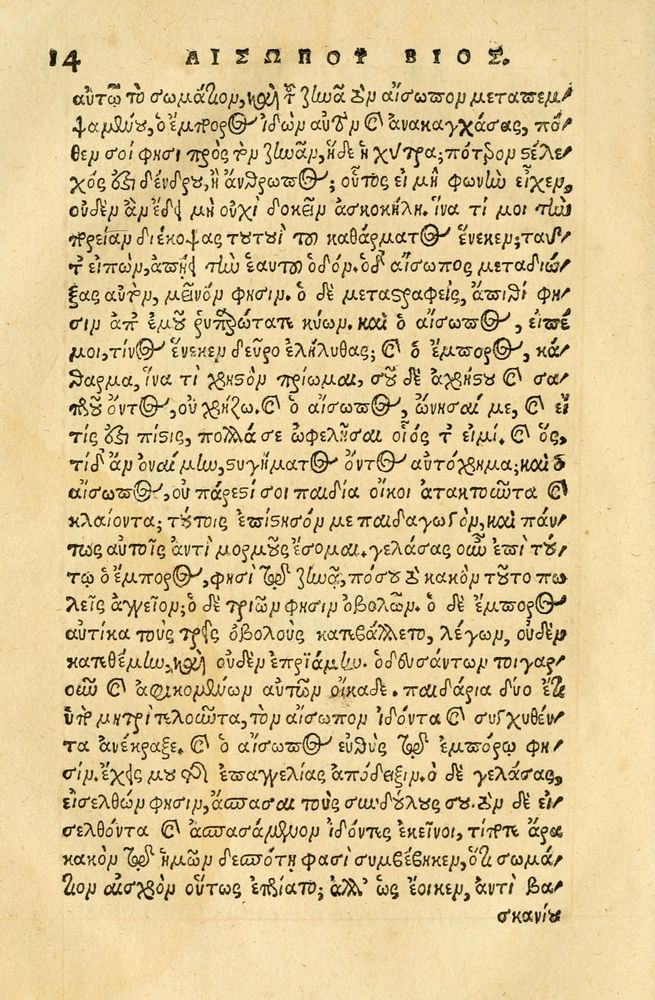 14 ΑΙΣΩΠΟΥ ΒΙΟΣ.
αὐτῷ τὸ σωμάτιον, καὶ τοῦ ζωνᾶ τὸν αἴσωπον μεταπεμ-
ψαμένου, ὁ ἔμπορος ἰδὼν αὐτὸν καὶ ἀνακαγχάσας, πό-
θεν σοί φησι πρὸς τὸν ζωνᾶν, ἥδε ἡ χύτρα; πότερον στέλε-
χός ἐστι δένδρου, ἢ ἄνθρωπος; οὗτος εἰ μὴ φωνὴν εἶχεν,
οὐδὲν ἂν ἔδει μὴ οὐχὶ δοκεῖν ἀσκοκήλη. ἵνα τί μοι τὴν
πορείαν διέκοψας τουτουῒ τοῦ καθάρματος ἕνεκεν; ταῦ-
τ εἰπὼν, ἀπῄει τὴν ἑαυτοῦ ὁδόν. ὁ δὲ αἴσωπος μεταδιώ-
ξας αὐτὸν, μεῖνόν φησιν. ὁ δὲ μεταστραφεὶς, ἄπιθι φη-
σὶν ἀπ' ἐμοῦ ῥυπαρώτατε κύων. καὶ ὁ αἴσωπος, εἰπέ
μοι, τίνος ἕνεκεν δεῦρο ἐλήλυθας; καὶ ὁ ἔμπορος, κά-
θαρμα, ἵνα τὶ χρηστὸν πρίωμαι, σοῦ δὲ ἀχρήστου καὶ σα-
προῦ ὄντος, οὐ χρήζω. καὶ ὁ αἴσωπος, ὤνησαί με, καὶ εἴ
τίς ἐστι πίστις, πολλά σε ὠφελῆσαι οἷός τ εἰμί. καὶ ὃς,
τί δ' ἂν ὀναίμην, στυγήματος ὄντος αὐτόχρημα; καὶ ὁ
αἴσωπος, οὐ πάρεστί σοι παιδία οἴκοι ἀτακτοῦντα καὶ
κλαίοντα; τούτοις ἐπίστησόν με παιδαγωγὸν, καὶ πάν-
τως αὐτοῖς ἀντὶ μορμοῦς ἔσομαι. γελάσας οὖν ἐπὶ τού-
τῳ ὁ ἔμπορος, φησὶ τῷ ζωνᾷ, πόσου τὸ κακὸν τοῦτο πω-
λεῖς ἀγγεῖον; ὁ δὲ τριῶν φησιν ὀβολῶν. ὁ δὲ ἔμπορος
αὐτίκα τοὺς τρεῖς ὀβολοὺς κατεβάλλετο, λέγων, οὐδὲν
κατεθέμην, καὶ οὐδὲν ἐπριάμην. ὁδευσάντων τοιγαρ-
οῦν καὶ ἀφικομένων αὐτῶν οἴκαδε. παιδάρια δύο ἔτι
ὑπὸ μητρὶ τελοῦντα, τὸν αἴσωπον ἰδόντα καὶ συγχυθέν-
τα ἀνέκραξε. καὶ ὁ αἴσωπος εὐθὺς τῷ ἐμπόρῳ φη-
σίν. ἔχεις μου τῆς ἐπαγγελίας ἀπόδειξιν. ὁ δὲ γελάσας,
εἰσελθών φησιν, ἄσπασαι τοὺς συνδούλους σου. τὸν δὲ εἰ-
σελθόντα καὶ ἀσπασάμενον ἰδόντες ἐκεῖνοι, τί ποτε ἄρα
κακὸν τῷ ἡμῶν δεσπότῃ φασὶ συμβέβηκεν, ὅτι σωμά-
τιον αἰσχρὸν οὕτως ἐπρίατο; ἀλλ' ὡς ἔοικεν, ἀντὶ βα-
σκανίου